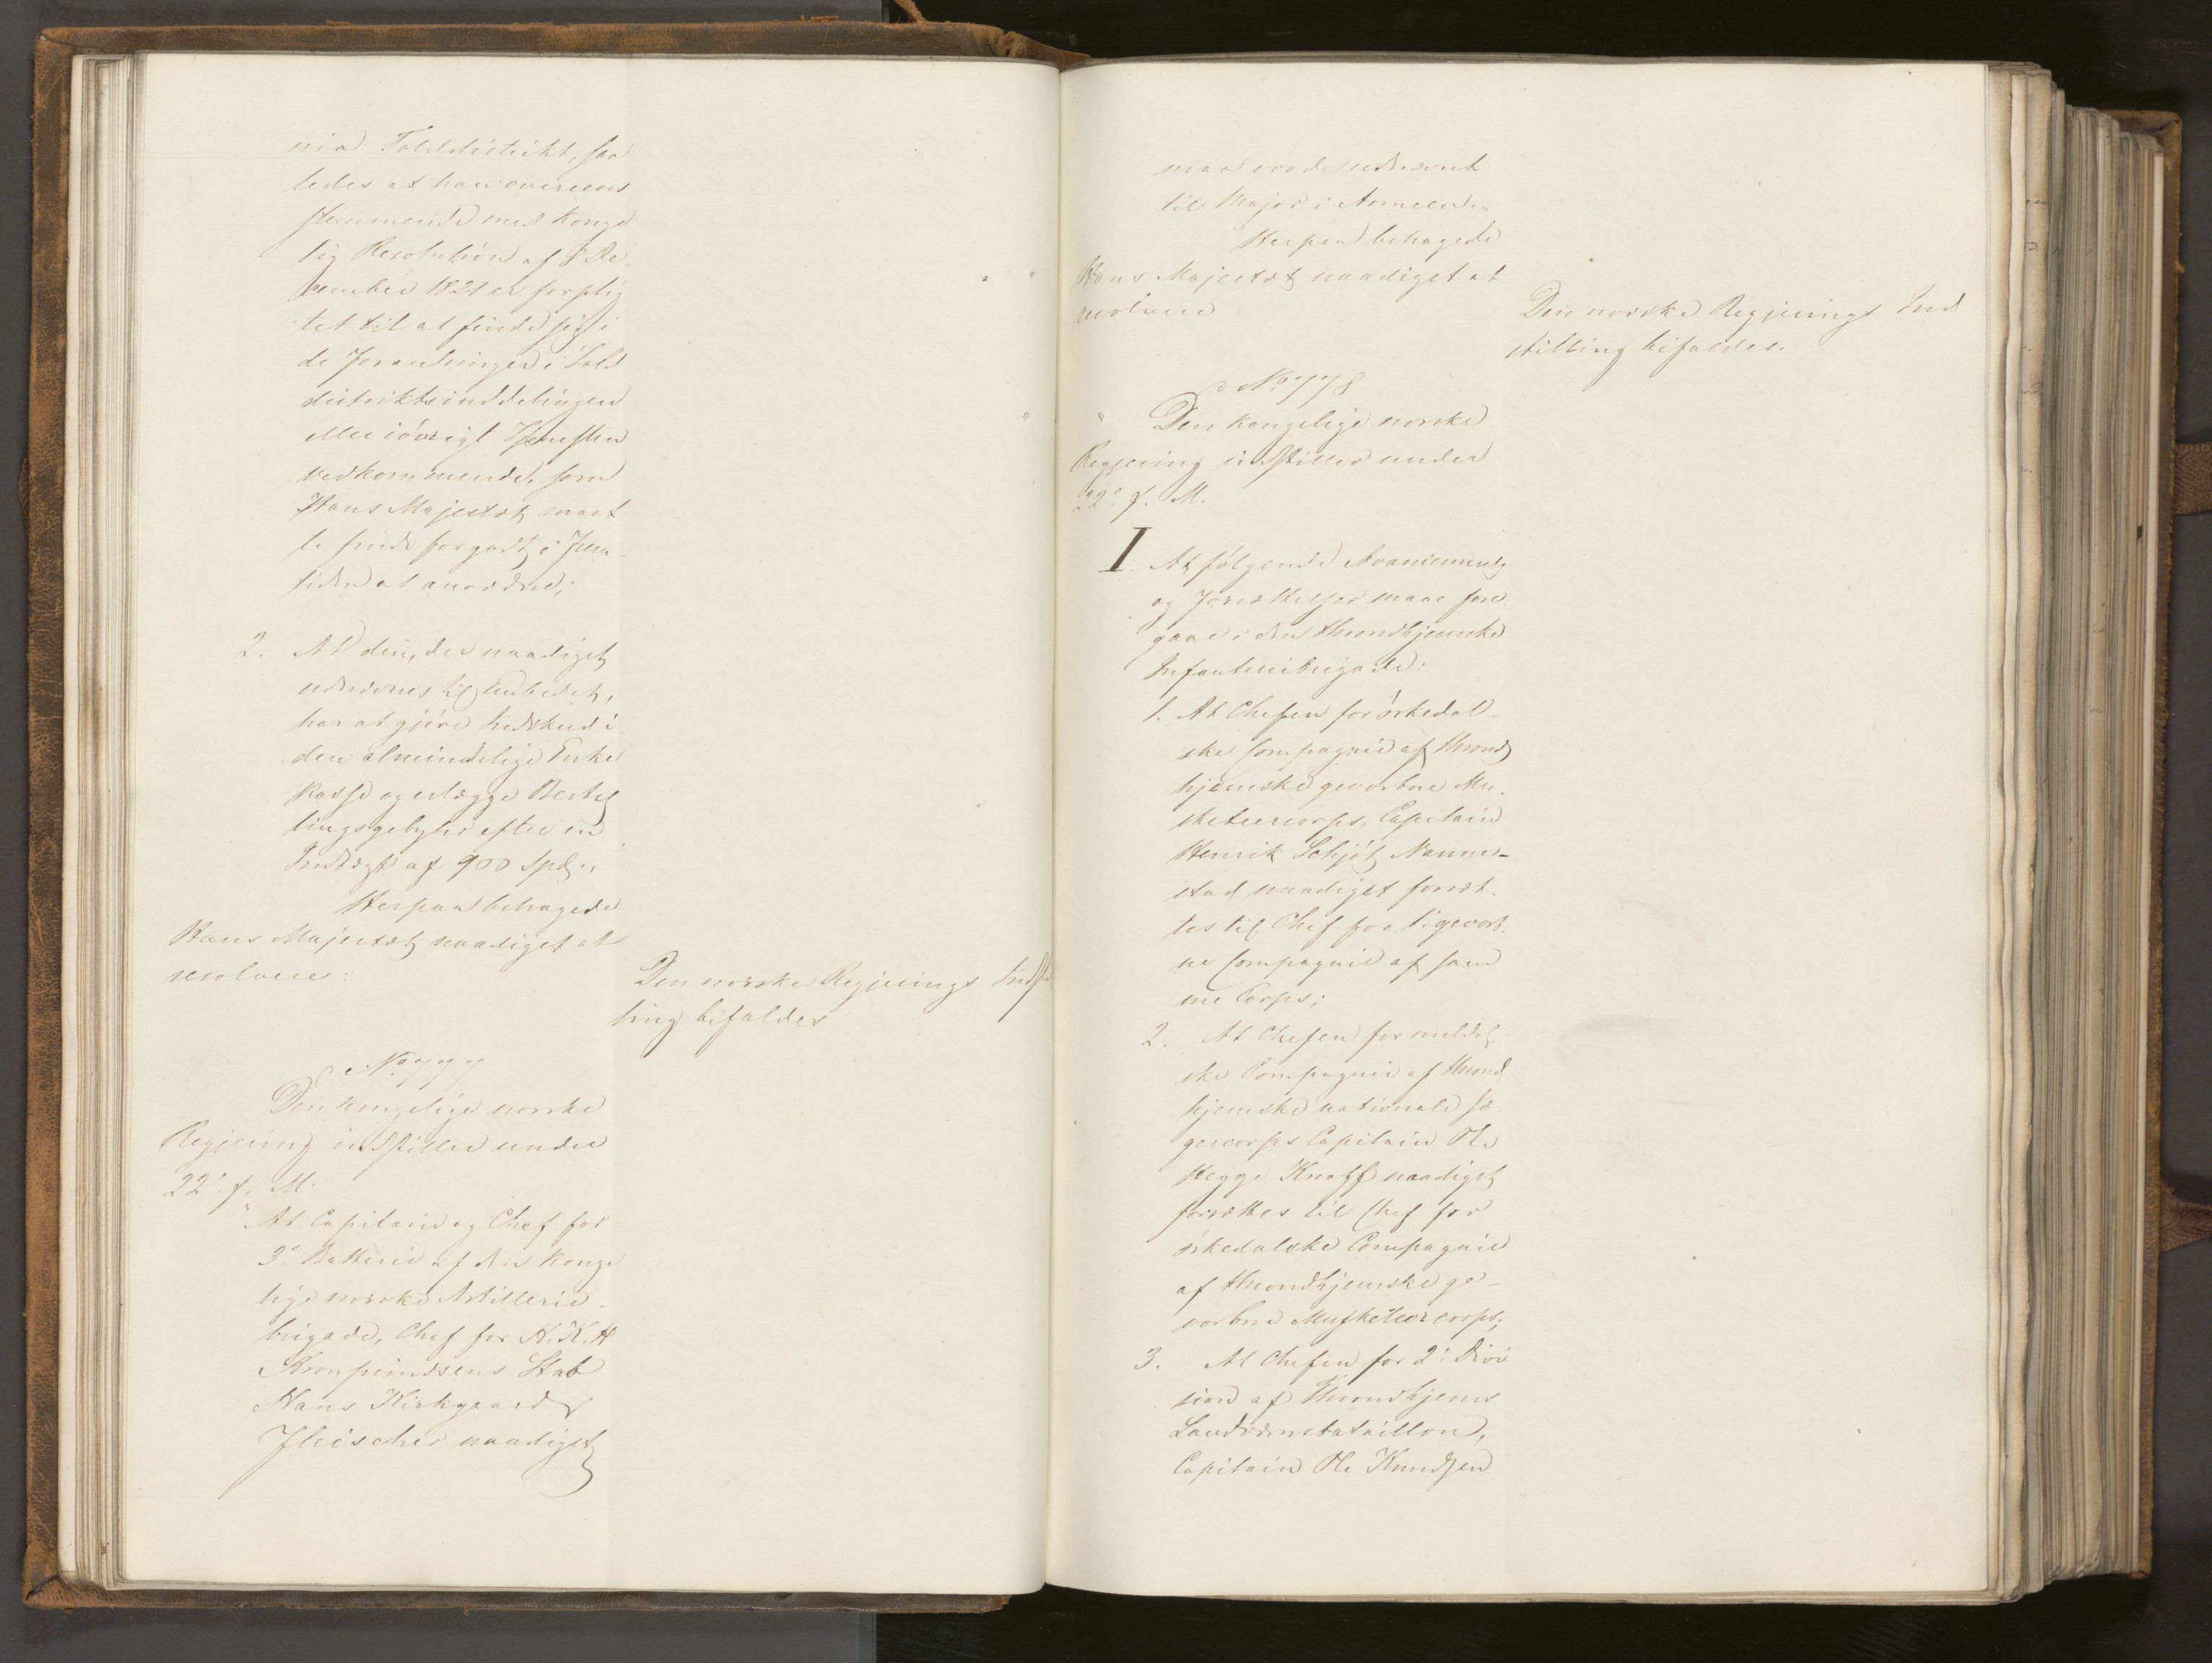 nia Tolddistrikt, saa
ledes at han overeens
stemmende med Konge
lig Resolution af 8 De
cember 1821 er forplig
tet til at finde sig i
de Forandringer i Told
distriktsinddelingen
eller iøvrigt Tjenesten
vedkommende, som
Hans Majestæt maat
te finde for godt i Frem-
tiden at anordne;
2. At den, der naadigst
udnævnes til Embedet,
har at gjøre Indskud i
den almindelige Enke
kasse og erlægge Bestal
lingsgebyhr efter en
Indtægt af 900 Spd.,
Herpaa behagede
Hans Majestæt naadigst at
resolvere:
Den norske Regjerings Indstil
ling bifaldes
No 777
Den kongelige norske
Regjering indstiller under
22. f. M.
"At Capitain og Chef for
3die Batterie af den konge
lige norske Artillerie-
brigade, Chef for H. K. H
Kronprindsens Stab
Hans Kirkgaard
Fleischer naadigst
maa vorde udnævnt
til Major i Armeen".
Herpaa behagede
Hans Majestæt naadigst at
resolvere:
Den norske Regjerings Ind
stilling bifaldes.
No 778
"Den kongelige norske
Regjering indstiller under
22. f. M.
I. At følgende Avancements
og Forsættelser maae fore
gaae i den throndhjemske
Infanteribrigade:
1. At Chefen for ørkedal-
ske Compagnie af thrond
hjemske gevorbne Mu-
sketeercorps, Capitain
Henrik Schjøtz Nanne-
stad naadigst forsæt-
tes til Chef for 1. gevorb-
ne Compagnie af sam
me Corps;
2. At Chefen for meldal
ske Compagnie af thrond
hjemske nationale Jæ
gercorps Capitain Ole
Hegge Knoff naadigst
forsættes til Chef for
ørkedalske Compagnie
af throndhjemske ge-
vorbne Musketeercorps;
3. At Chefen for 2. Divi
sion af Throndhjems
Landværnsbataillon,
Capitain Ole Knudsen